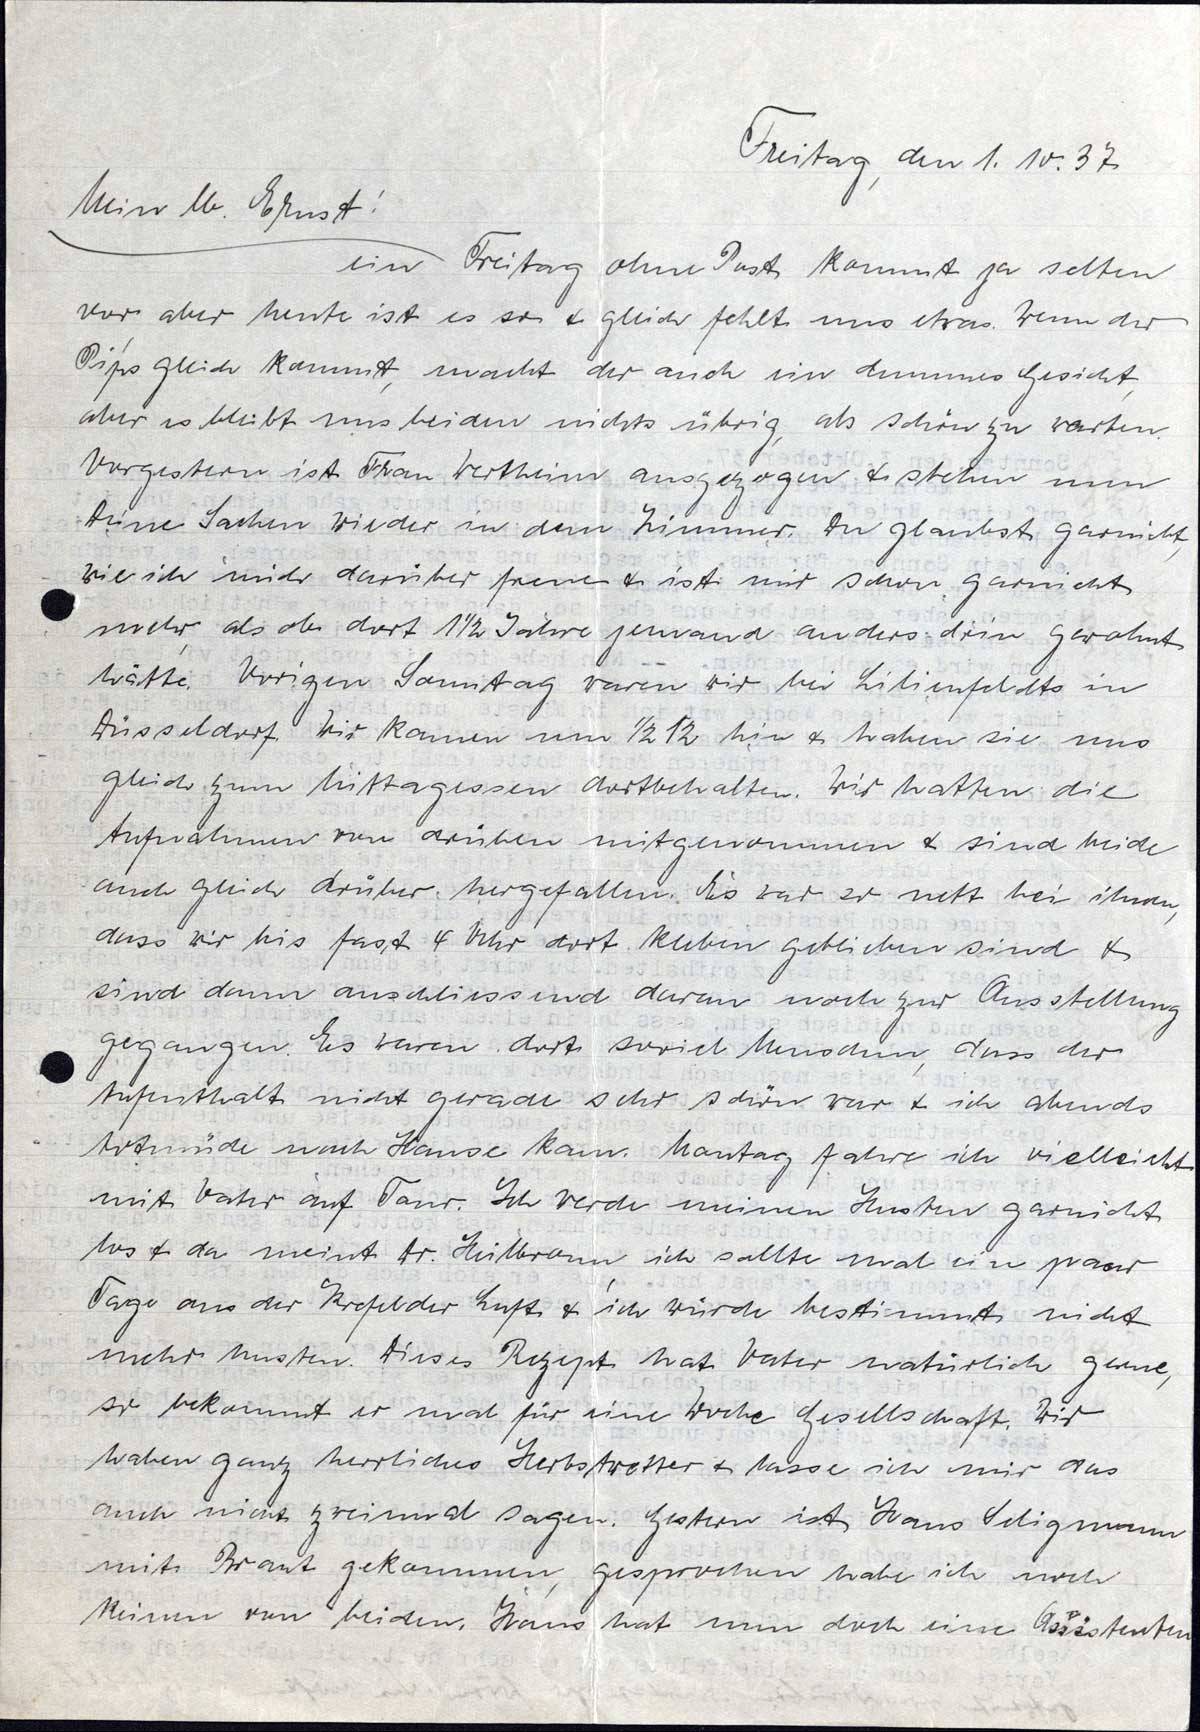 Freitag, den 1. 10. 37
Mein lb. Ernst!
ein Freitag ohne Post kommt ja selten
vor aber heute ist es so & gleich fehlt uns etwas. Wenn der
Pips gleich kommt, macht der auch ein dummes Gesicht,
aber es bleibt uns beiden nichts übrig, als schön zu warten.
Vorgestern ist Frau Wertheim ausgezogen & stehen nun
Deine Sachen wieder in dem Zimmer. Du glaubst garnicht,
wie ich mich darüber freue & ist mir schon garnicht
mehr, als ob dort 1½ Jahre jemand anders drin gewohnt
hätte. Vorigen Sonntag waren wir bei Lilienfeldts in
Düsseldorf. Wir kamen um ½ 12 hin & haben sie uns
gleich zum Mittagessen dortbehalten. Wir hatten die
Aufnahmen von drüben mitgenommen & sind beide
auch gleich drüber hergefallen. Es war so nett bei ihnen,
dass wir bis fast 4 Uhr dort kleben geblieben sind &
sind dann anschliessend daran noch zur Ausstellung
gegangen. Es waren dort soviel Menschen, dass der
Aufenthalt nicht gerade sehr schön war & ich abends
totmüde nach Hause kam. Montag fahre ich vielleicht
mit Vater auf Tour. Ich werde meinen Husten garnicht
los & da meint Dr. Heilbronn, ich sollte mal ein paar
Tage aus der Krefelder Luft & ich würde bestimmt nicht
mehr husten. Dieses Rezept hat Vater natürlich gerne,
so bekommt er mal für eine Woche Gesellschaft. Wir
haben ganz herrliches Herbstwetter & lasse ich mir das
auch nicht zweimal sagen. Gestern ist Hans Seligmann
mit Braut gekommen, gesprochen habe ich noch
keinen von beiden. Hans hat nun doch eine Assistenten